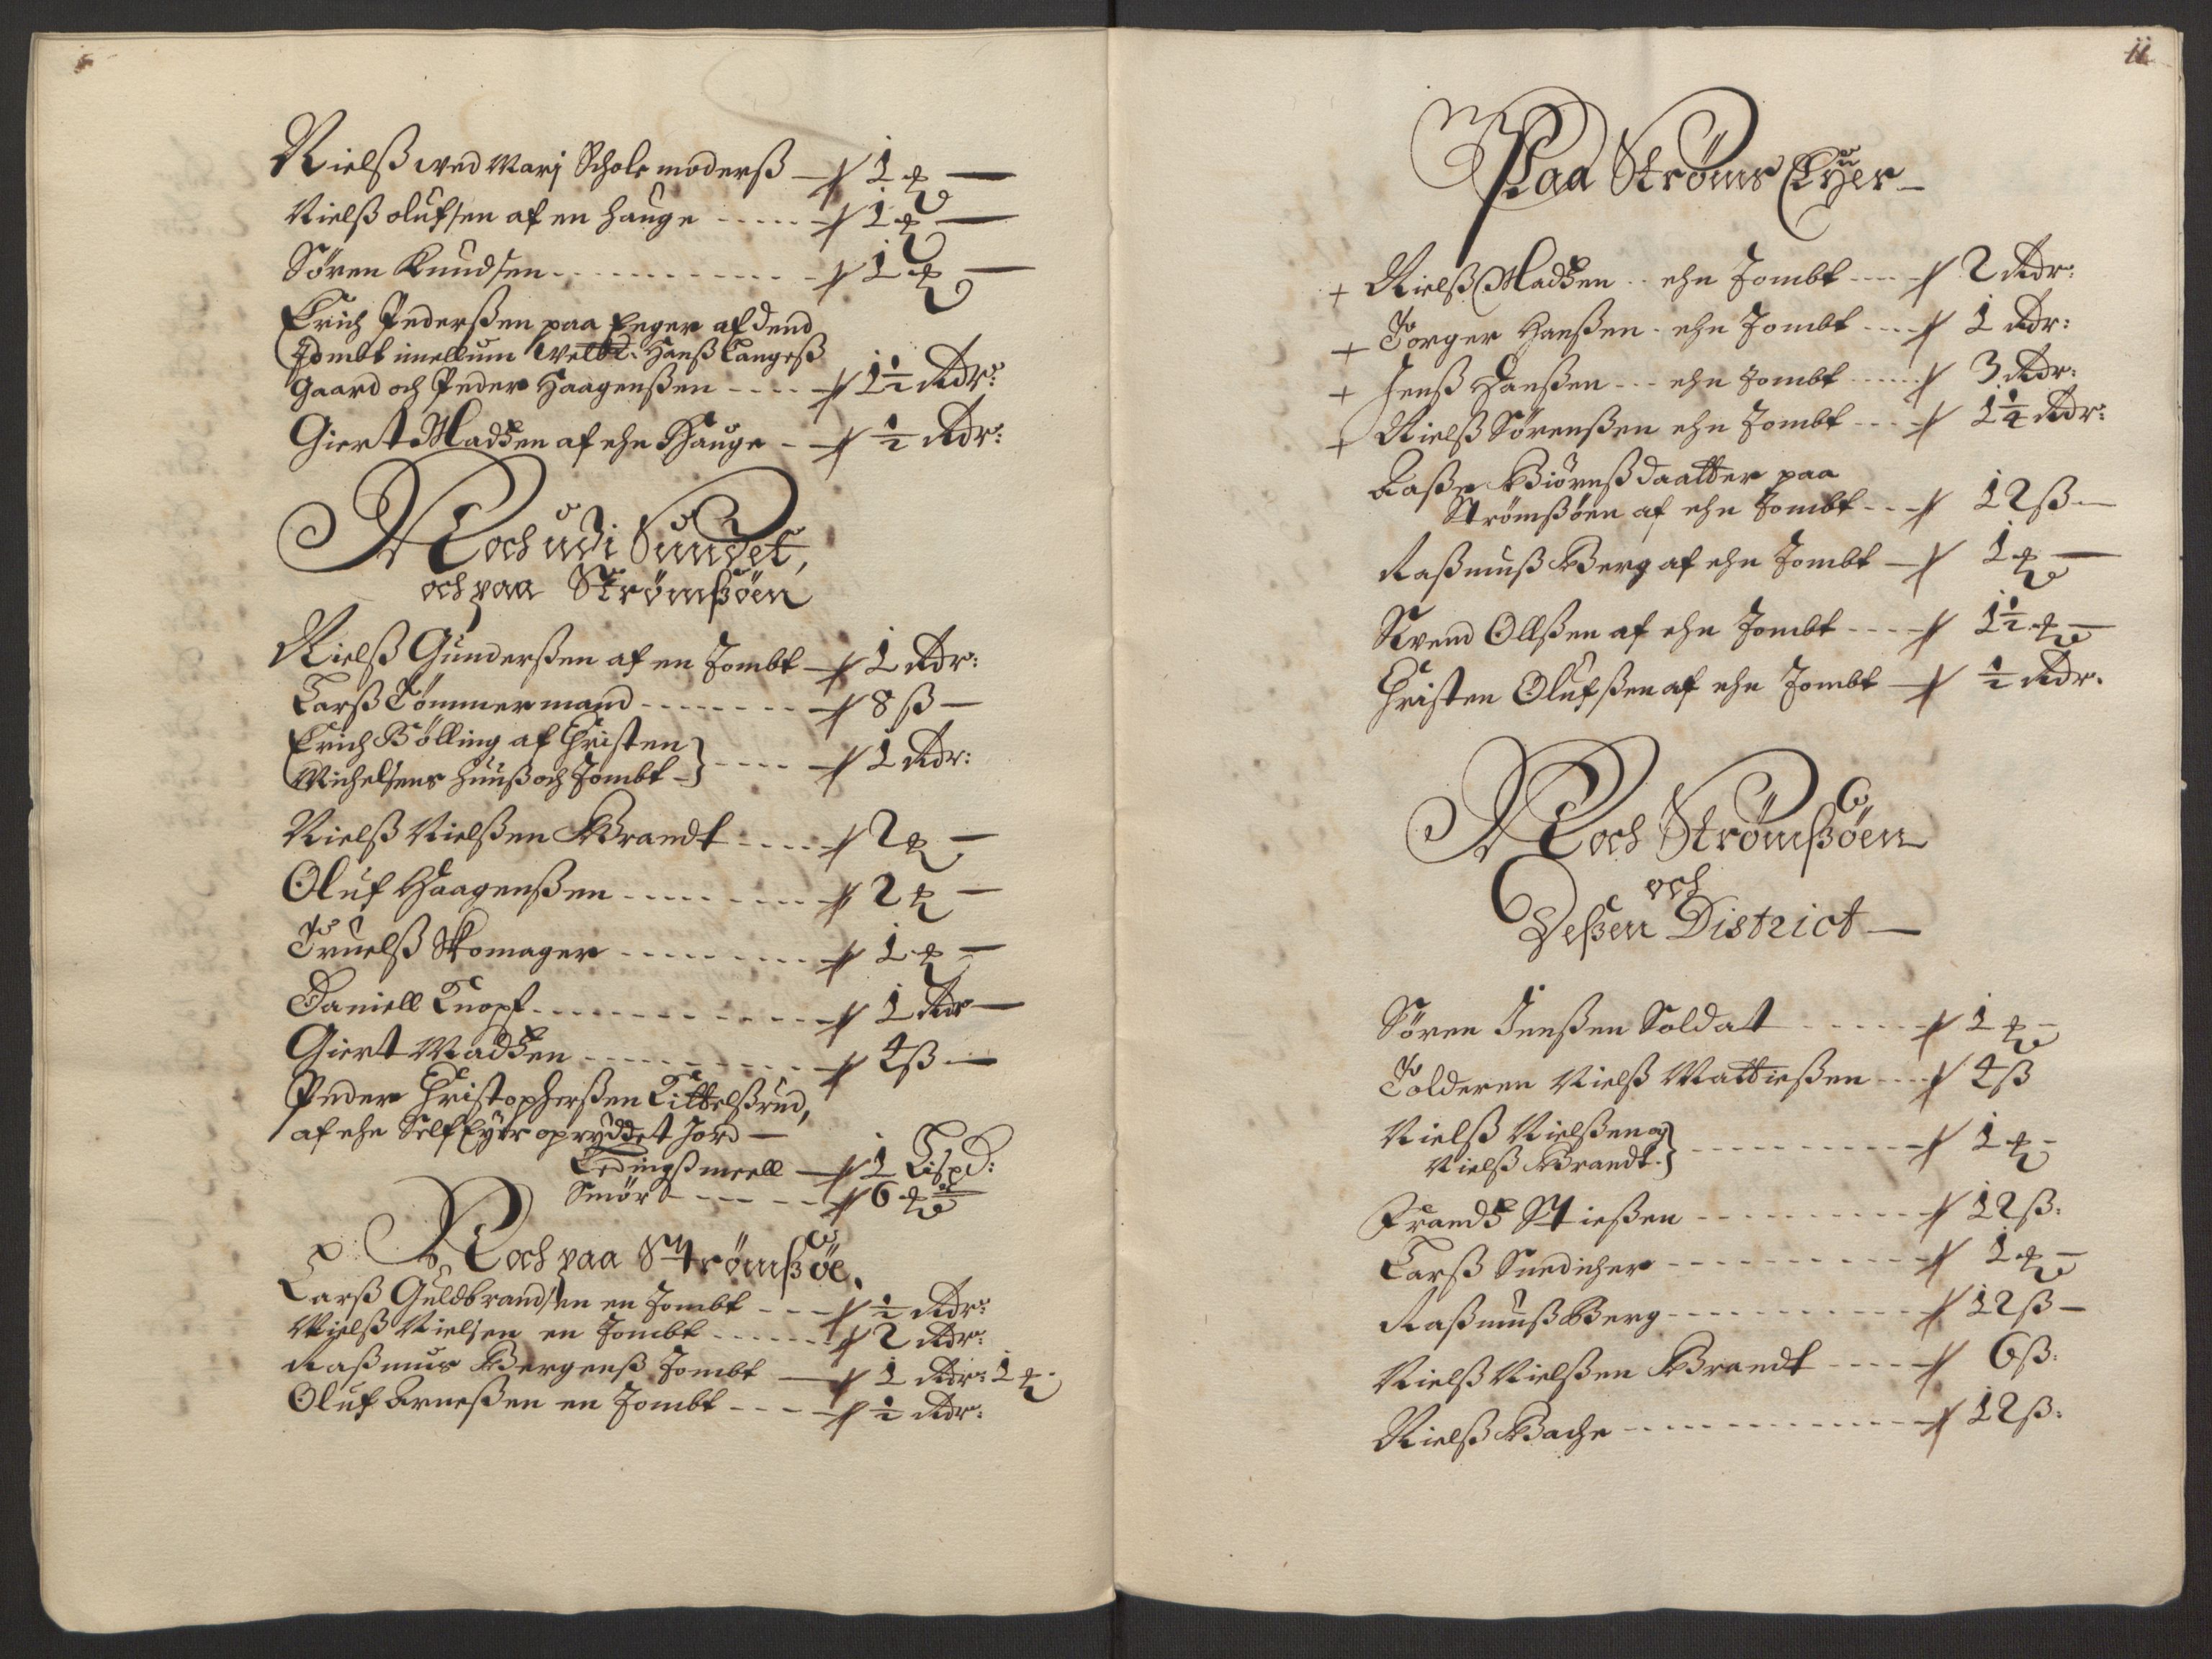 Nielß wed Marj Schole moderß — 1 ℔ —
Nielß olufsen af en hauge ----- 1 ℔ —
Sören Knudsen ----- 1 ℔ —
Erich Pederßen paa Enger af dend
Tombt imellum Welbl: Hanß Langeß
Gaard och Peder Haagenßen ---- 1½ Rdr:
Giert Madsen af ehn Hauge -- ½ Rdr:
Noch udi Sundet,
och paa Strømßöen
Nielß Gunderßen af en Tombt — 1 Rdr:
Larß Tömmermand ----- 8 ß —
Erich Bölling af Christen
Michelsens Huuß och Tombt ---- 1 Rdr:
Nielß Nielßen Brandt ---- 2 ℔ —
Oluf Haagenßen ----- 2 ℔ —
Truelß Skomager ----- 1 ℔ —
Daniell Knopf ----- 1 Rdr —
Giert Madsen ----- 4 ß —
Peder Christopherßen Kittelßrud,
af ehn Self Eyer opryddet Jord —
Ledingß meell — 1 Lispd:
Smör ----- 6 ℔
Noch paa Strömßöe.
Larß Guldbrandsen en Tombt --- ½ Rdr:
Nielß Nielsen en Tombt ----- 2 Rdr:
Raßmus Bergenß Tombt — 1 Rdr: 1 ℔
Oluf Arneßen en Tombt ---- ½ Rdr:
11
Paa Ströms Eyer —
+ Nielß Madsen -- ehn Tombt ---- 2 Rdr:
+ Torger Hanßen - ehn Tombt ---- 1 Rdr:
+ Jenß Hanßen --- ehn Tombt ----- 3 Rdr:
+ Nielß Sörenßen ehn Tombt ---- 1¼ Rdr:
Aaße Biörnßdaatter paa
Strömßöen af ehn Tombt --- 12 ß —
Raßmuß Berg af ehn Tombt — 1 ℔ —
Svend Ollßen af ehn Tombt ---- 1½ ℔ —
Christen Olufßen af ehn Tombt — ½ Rdr.
Noch Strömßöen
och
Deßen District —
Sören Jenßen Soldat ----- 1 ℔ —
Tolderen Nielß Mattießen ---- 4 ß
Nielß Nielßen og
Nielß Brandt. ----- 1 ℔ -
Frands Stießen ----- 12 ß:
Larß Snedicher ----- 1 ℔ —
Raßmuß Berg ----- 12 ß —
Nielß Nielßen Brandt ---- 6 ß:
Nielß Bache ----- 12 ß: